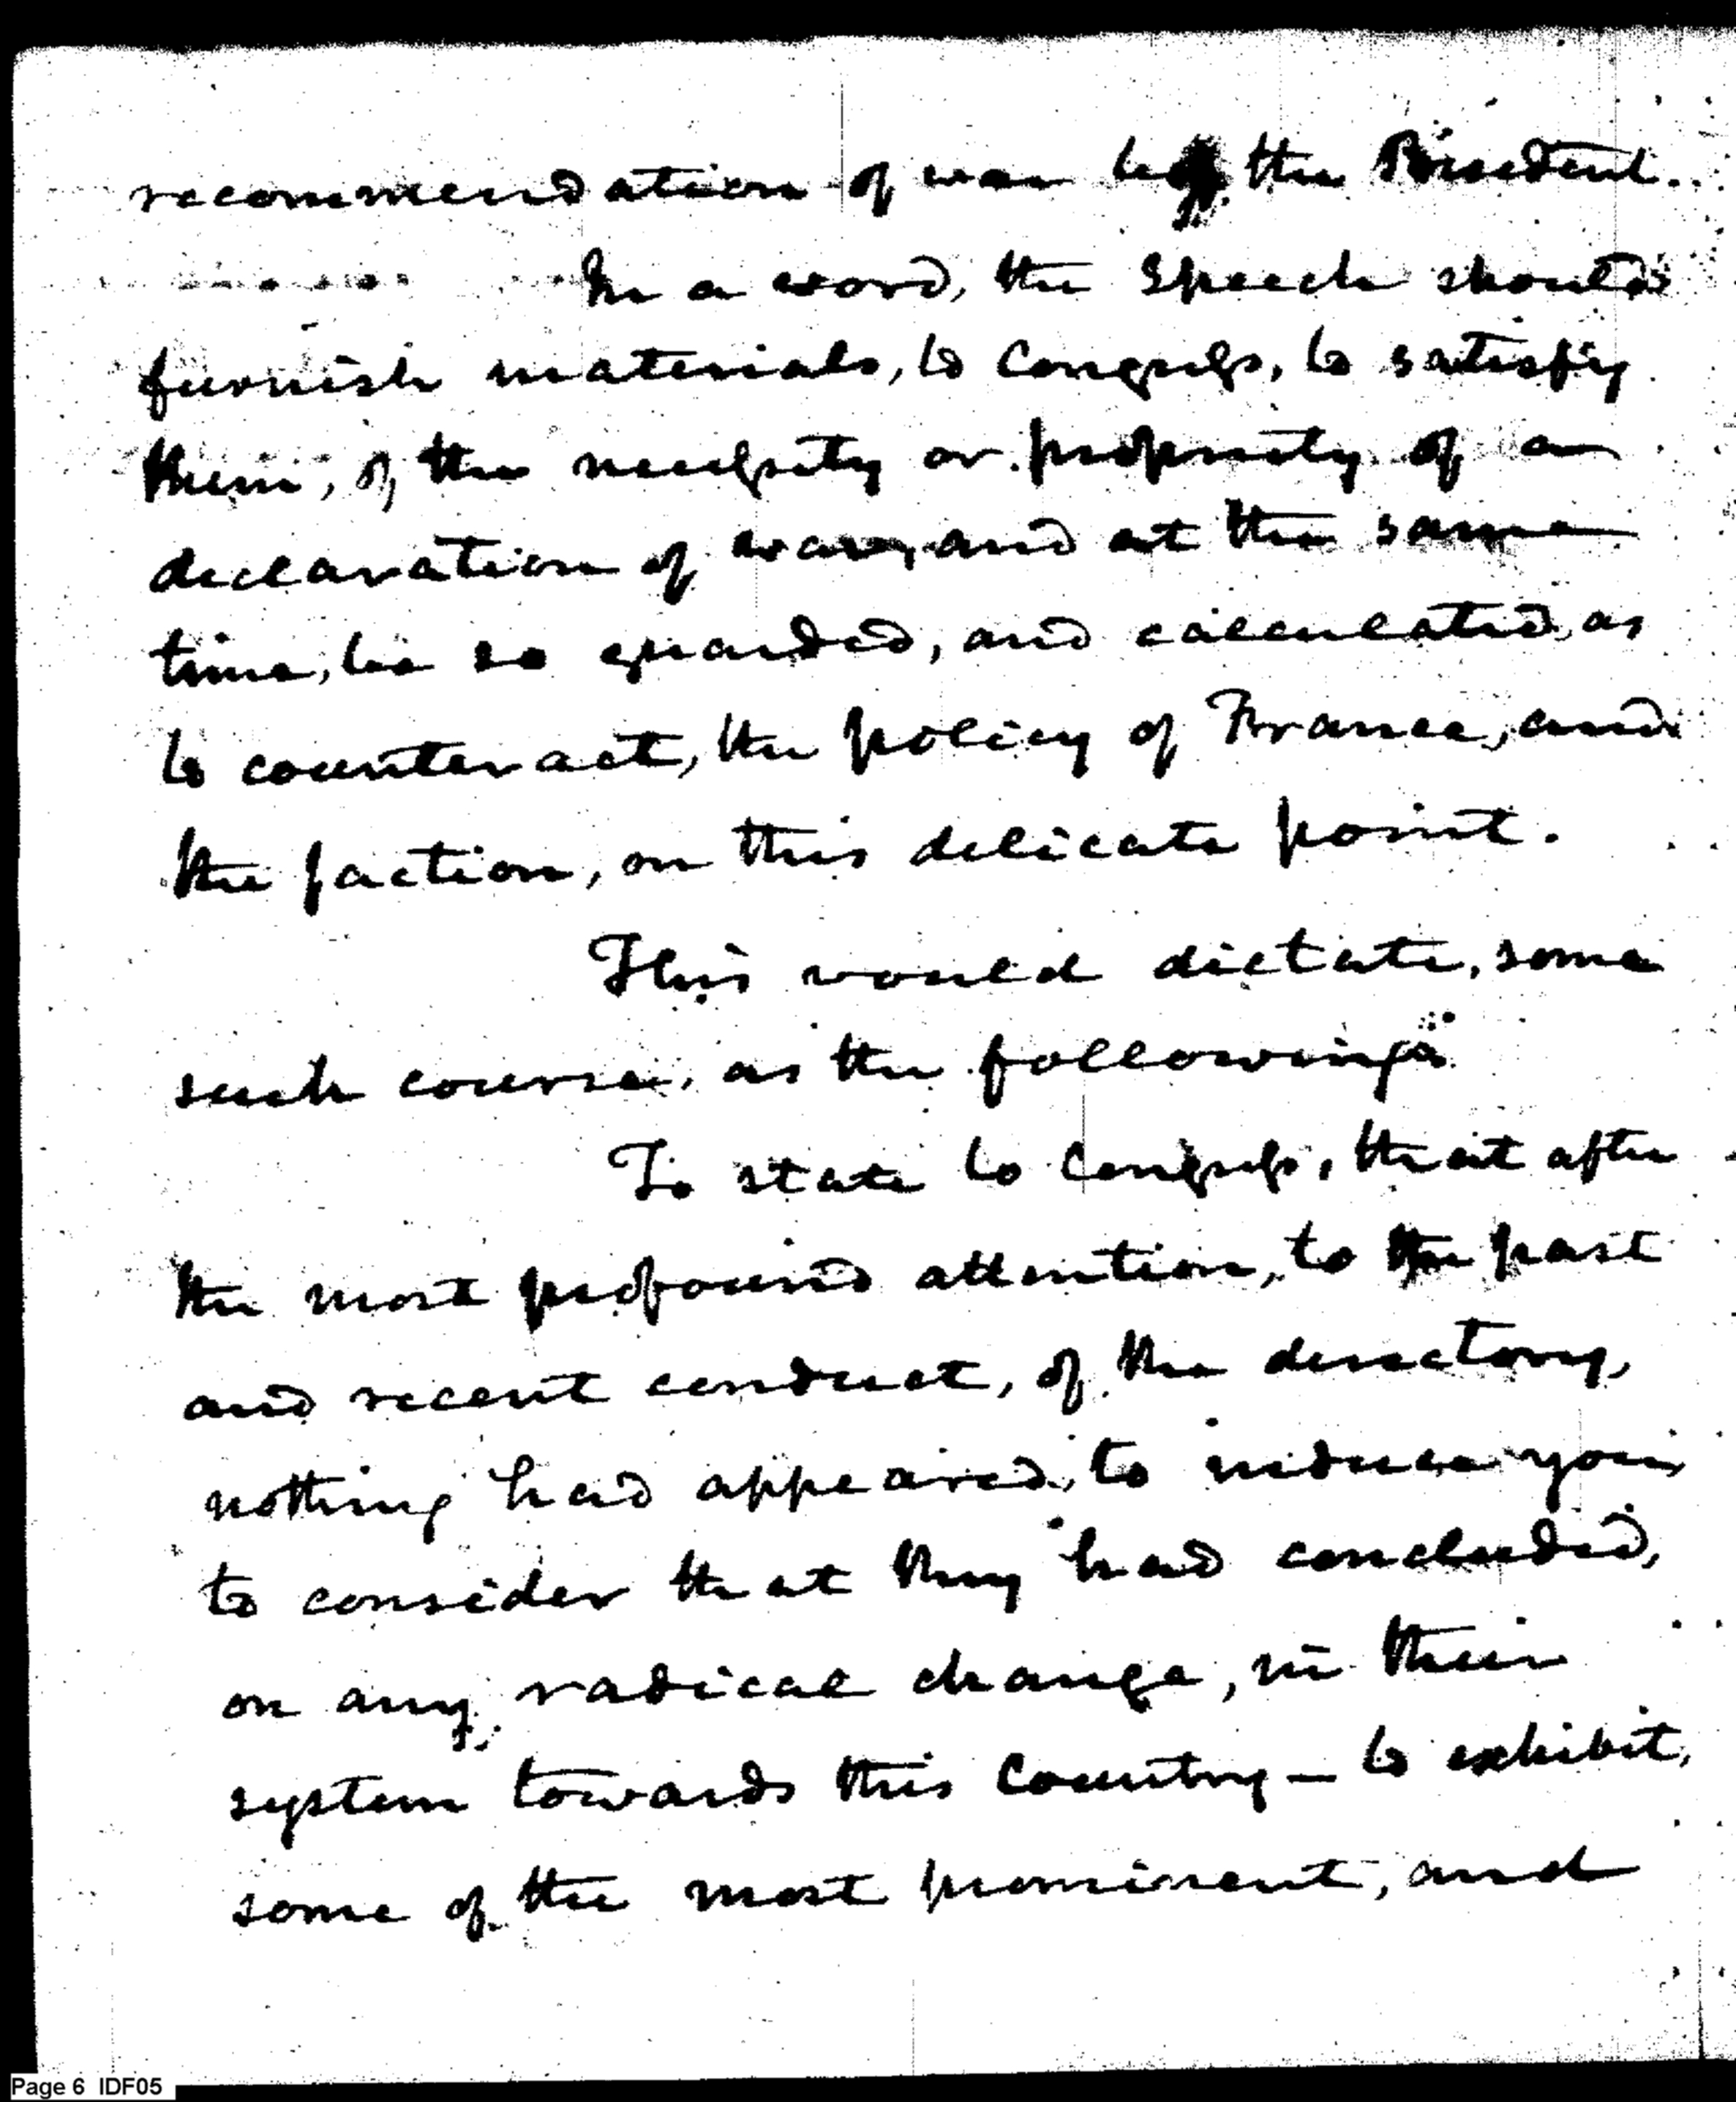 recommendation of war by the President.
In a word, the Speech should
furnish materials, to Congress, to satisfy
them, of the necessity or propriety of a
declaration of war, and at the same
time, be so guarded, and calculated, as
to counteract, the policy of France, and
the faction, on this delicate point.
This would dictate, some
such course, as the following.
To state to Congress, that after
the most profound attention, to the past
and recent conduct, of the directory,
nothing had appeared, to induce you
to consider that they had concluded,
on any radical change, in their
system towards this Country — to exhibit,
some of the most prominent, and
Page 6 IDF05